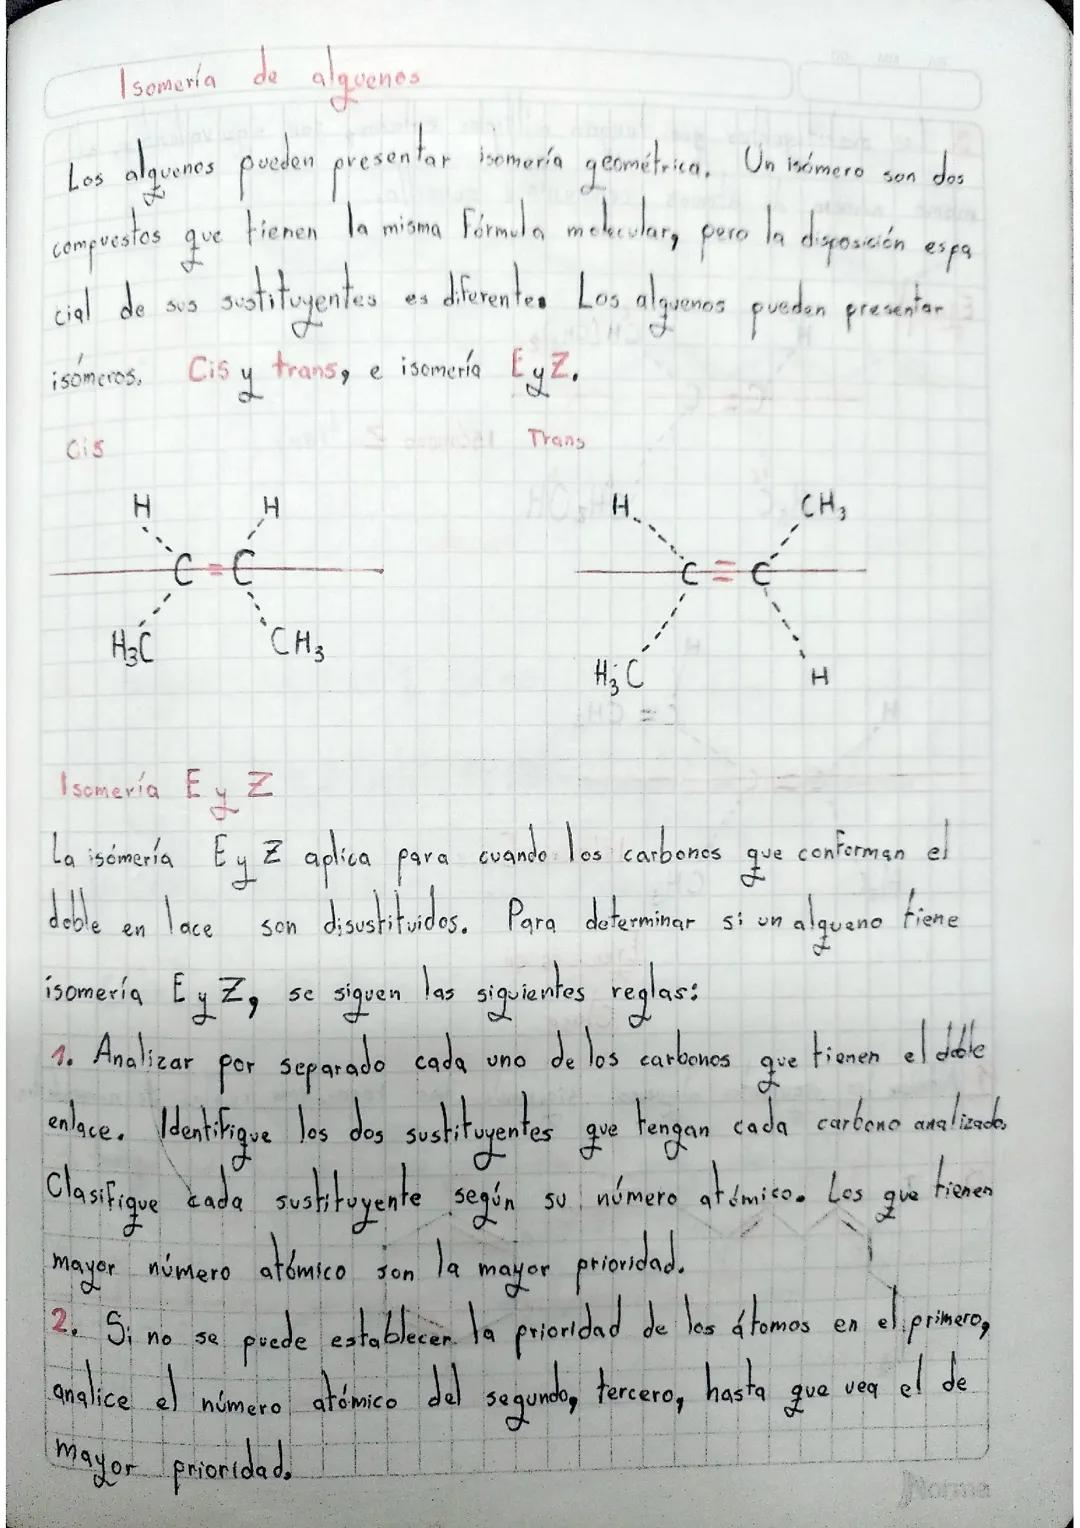 Isomería de alquenos
Los alquenos pueden presentar isomería geométrica. Un isómero son dos
compuestos que tienen la misma Fórmula molecular, pero la disposición espa
cial de sus sustituyentes es diferente. Los alquenos pueden presentar
isómeros. Cis y trans, e isomería E y Z.
Cis Trans
H H H CH3
C=C C=C
H3C CH3 H3C H
Isomería E y Z
La isómería E y Z aplica para cuando los carbonos que conforman el
doble en lace son disustituidos. Para determinar si un alqueno tiene
isomería E y Z, se siguen las siguientes reglas:
1. Analizar por separado cada uno de los carbonos que tienen el doble
enlace. Identifique los dos sustituyentes que tengan cada carbono analizado.
Clasifique cada sustituyente según su número atómico. Los que tienen
mayor número atómico son la mayor prioridad.
2. Si no se puede establecer la prioridad de los átomos en el primero,
analice el número atómico del segundo, tercero, hasta que vea el de
mayor prioridad.
Norma